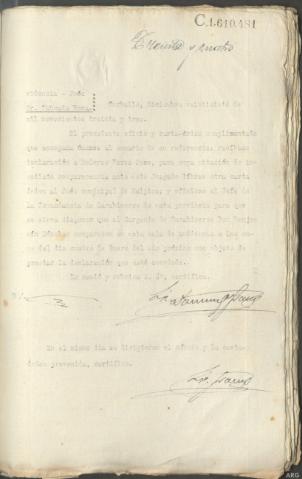 C.1.640.481
Treinta y cuatro
videncia - Juez
Sr. Taboada Roca.
Carballo, diciembre, veintisiete de
mil novecientos treinta y tres.
El precedente oficio y carta-orden cumplimentada
que acompaña únanse al sumario de su referencia; recíbase
declaración a Dolores
para cuya citación de in-
mediata comparecencia ante este Juzgado líbrese otra carta
orden al Juez municipal de Malpica; y ofíciese al Jefe de
la Comandancia de Carabineros de esta provincia para que
se sirva disponer que el Sargento de Carabineros Don Benja-
mín
comparezca en esta sala de audiencia a las on-
ce del día cuatro de Enero del año próximo con objeto de
prestar la declaración que está acordada.
Lo mandó y rubrica S. Sª, certifico.
En el mismo día se dirigieron el oficio y la carta-
orden prevenida, certifico.